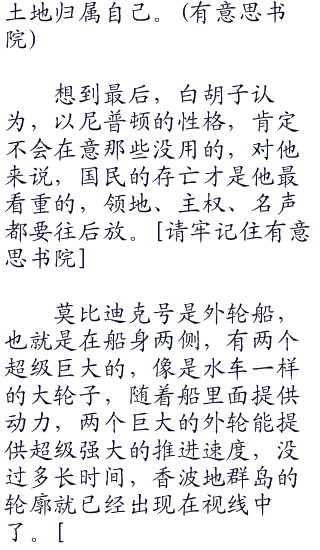 土地归属自己。(有意思书
院)
想到最后，白胡子认
为，以尼普顿的性格，肯定
不会在意那些没用的，对他
来说，国民的存亡才是他最
看重的，领地、主权、名声
都要往后放。[请牢记住有意
思书院]
莫比迪克号是外轮船，
也就是在船身两侧，有两个
超级巨大的，像是水车一样
的大轮子，随着船里面提供
动力，两个巨大的外轮能提
供超级强大的推进速度，没
过多长时间，香波地群岛的
轮廓就已经出现在视线中
了。[